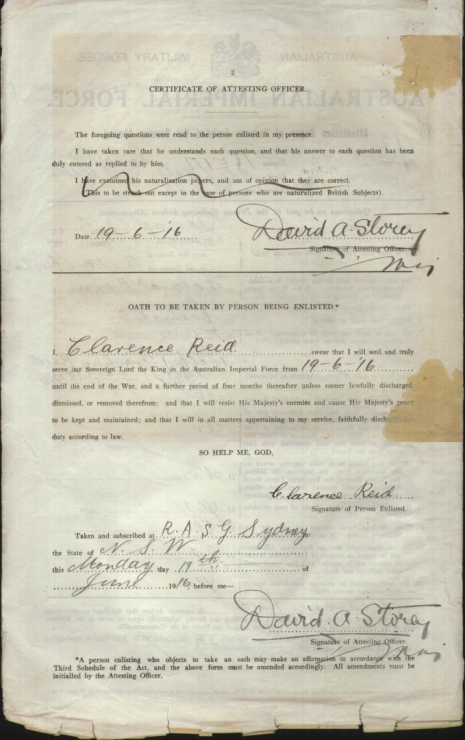 2
CERTIFICATE OF ATTESTING OFFICER.
The foregoing questions were read to the person enlisted in my presence.
I have taken care that he understands each question, and that his answer to each question has been
duly entered as replied to by him.
I have examined his naturalization papers, and am of opinion that they are correct.
(This to be struck out except in the case of persons who are naturalized British Subjects).
Date 19-6-16 David A. Storey
Signature of Attesting Officer.
OATH TO BE TAKEN BY PERSON BEING ENLISTED.*
I, Clarence Reid swear that I will well and truly
serve our Sovereign Lord the King in the Australian Imperial Force from 19-6-'16
until the end of the War, and a further period of four months thereafter unless sooner lawfully discharged,
dismissed, or removed therefrom; and that I will resist His Majesty's enemies and cause His Majesty's peace
to be kept and maintained; and that I will in all matters appertaining to my service, faithfully discharge my
duty according to law.
SO HELP ME, GOD.
Clarence Reid
Signature of Person Enlisted.
Taken and subscribed at R.A.S.G Sydney
the State of N. S. W.
this Monday day 19th of
June 1916 before me—
David A. Storey
Signature of Attesting Officer.
*A person enlisting who objects to take an oath may make an affirmation in accordance with the
Third Schedule of the Act, and the above form must be amended accordingly. All amendments must be
initialled by the Attesting Officer.